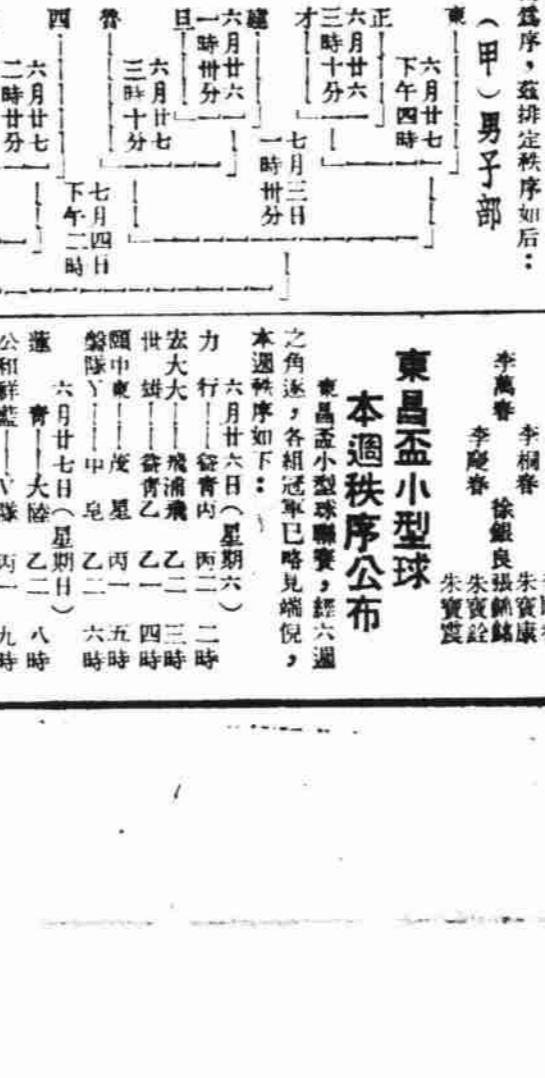 爲序，茲排定秩序如后：
（甲）男子部
東
六月廿七
下午四時
正
六月廿六
三時十分
才
七月三日
一時卅分
建
六月廿六
一時卅分
旦
六月廿七
三時十分
魯
七月四日
下午二時
四
六月廿七
二時廿分
朱寶康
李桐春
張銘銘
徐銀良
李萬春
朱寶銓
李慶春
朱寶震
東昌盃小型球
本週秩序公布
東昌盃小型球聯賽，經六週
之角逐，各組冠軍已略見端倪，
本週秩序如下：
六月廿六日（星期六）
力行——益青丙 丙二 二時
宏大大——飛浦飛 乙二 三時
世雄——益青乙 乙一 四時
頤中東——茂星 丙一 五時
磐隊丫——中皂 乙二 六時
六月廿七日（星期日）
蓮青——大陸 乙二 八時
公和祥藍——丫隊 丙一 九時